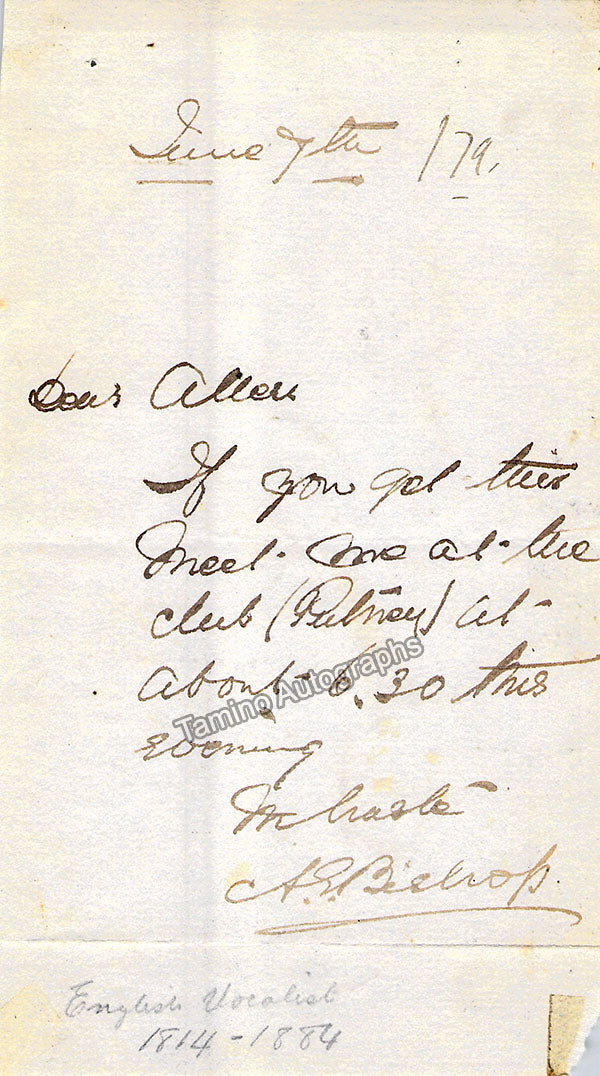 June 7th /79.
Dear Allen
If you get this
meet me at the
club (Putney) at
about 6.30 this
evening
In haste
A.E. Bishop.
Tamino Autographs
English Vocalist
1814-1884